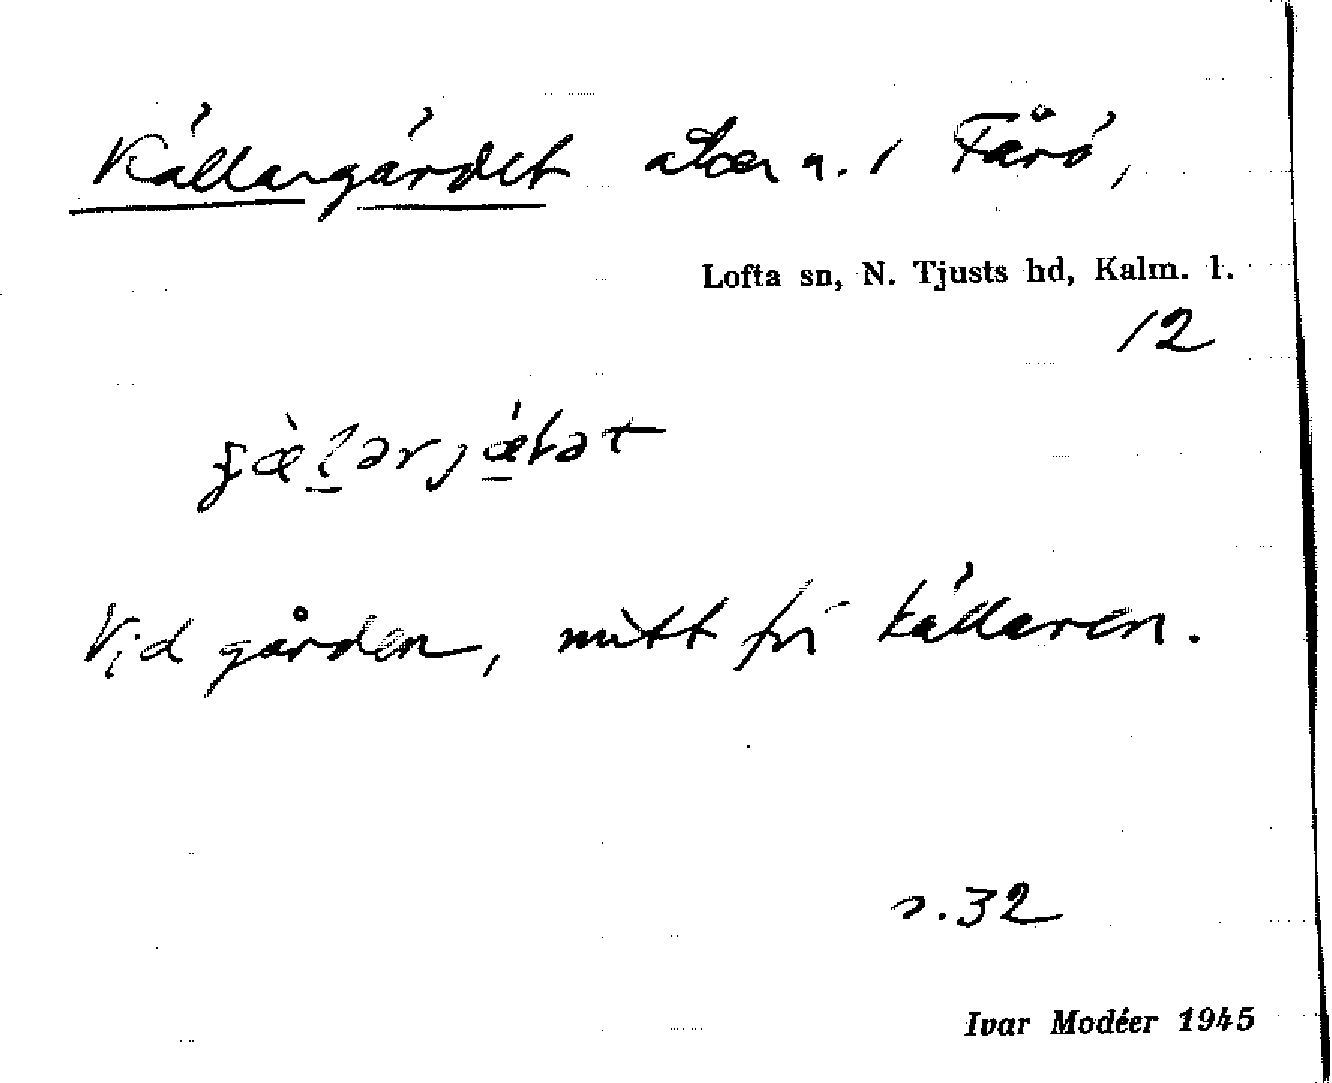 Källargärdet åker n. 1 Fårö,
Lofta sn, N. Tjusts hd, Kalm. l.
12
Vid gården, mitt för källaren.
s. 32
Ivar Modéer 1945